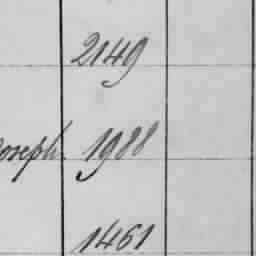 2149
Joseph 1988
1461